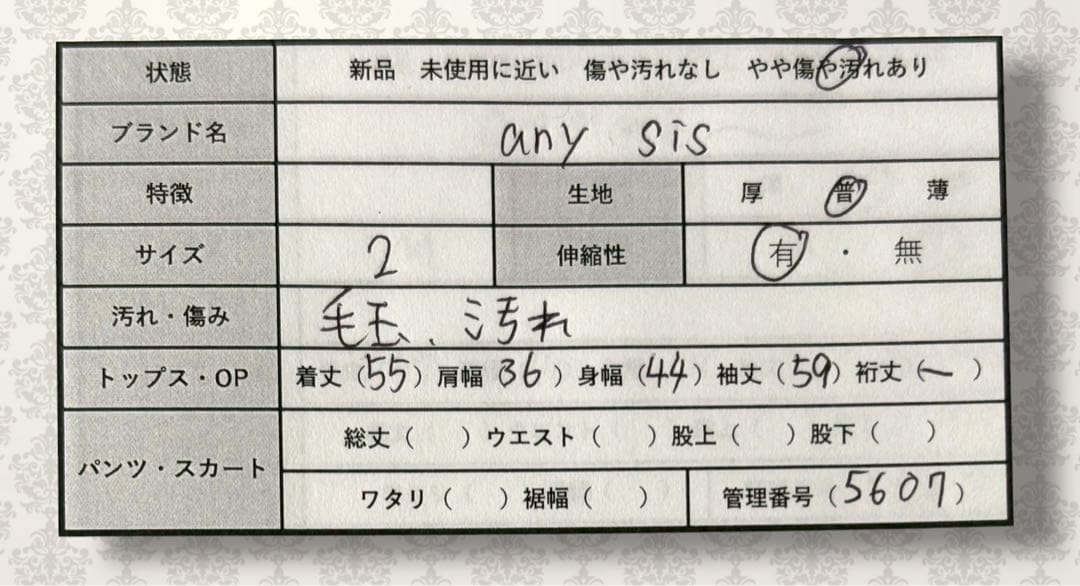 状態 新品 未使用に近い 傷や汚れなし やや傷や汚れあり
ブランド名 any sis
特徴 生地 厚 普 薄
サイズ 2 伸縮性 有 ・ 無
汚れ・傷み 毛玉、汚れ
トップス・OP 着丈(55) 肩幅 36) 身幅(44) 袖丈(59) 裄丈(ー)
パンツ・スカート 総丈( ) ウエスト( ) 股上( ) 股下( )
ワタリ( ) 裾幅( ) 管理番号(5607)